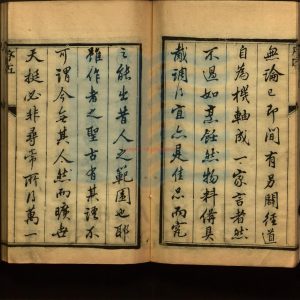 無論已即間有另闢徑道
自為機軸成一家言者然
不過如烹飪然物料備具
裁調得宜亦是佳品而究
之能出昔人之範圍也耶
雖作者之聖古其不
可謂今無其人然而曠世
天挺必非尋常所得萬一